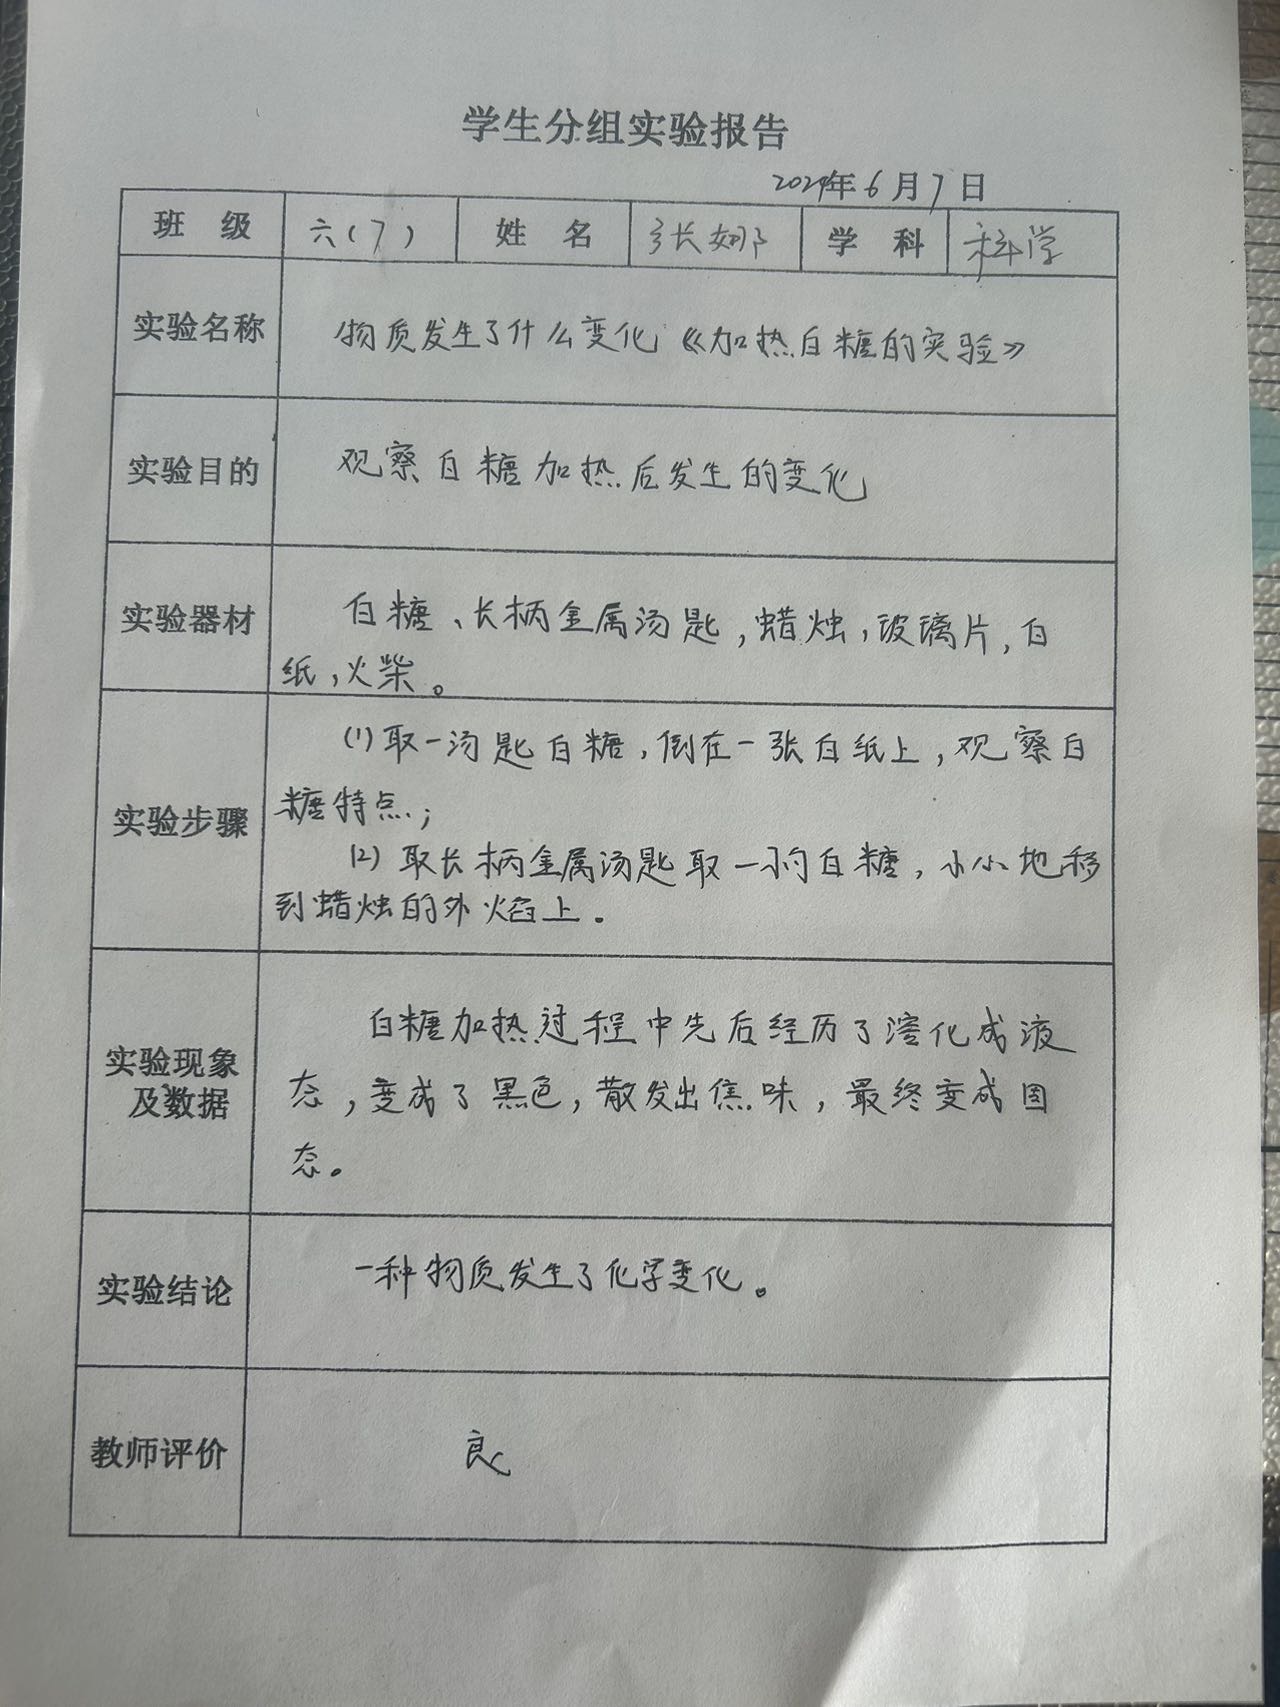 学生分组实验报告
2024年6月7日
班 级 六(7) 姓 名 张娜 学 科 科学
实验名称 物质发生了什么变化《加热白糖的实验》
实验目的 观察白糖加热后发生的变化
实验器材 白糖、长柄金属汤匙,蜡烛,玻璃片,白
纸,火柴。
实验步骤 (1)取一汤匙白糖,倒在一张白纸上,观察白
糖特点;
(2)取长柄金属汤匙取一小勺白糖,小小地移
到蜡烛的外焰上.
实验现象
及数据
白糖加热过程中先后经历了溶化成液
态,变成了黑色,散发出焦味,最终变成固
态。
实验结论 一种物质发生了化学变化。
教师评价 良